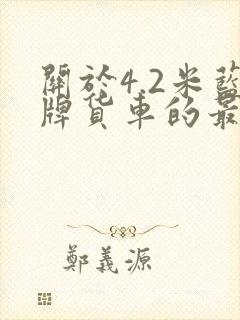 關於4.2米藍
牌貨車的最
鄭義源